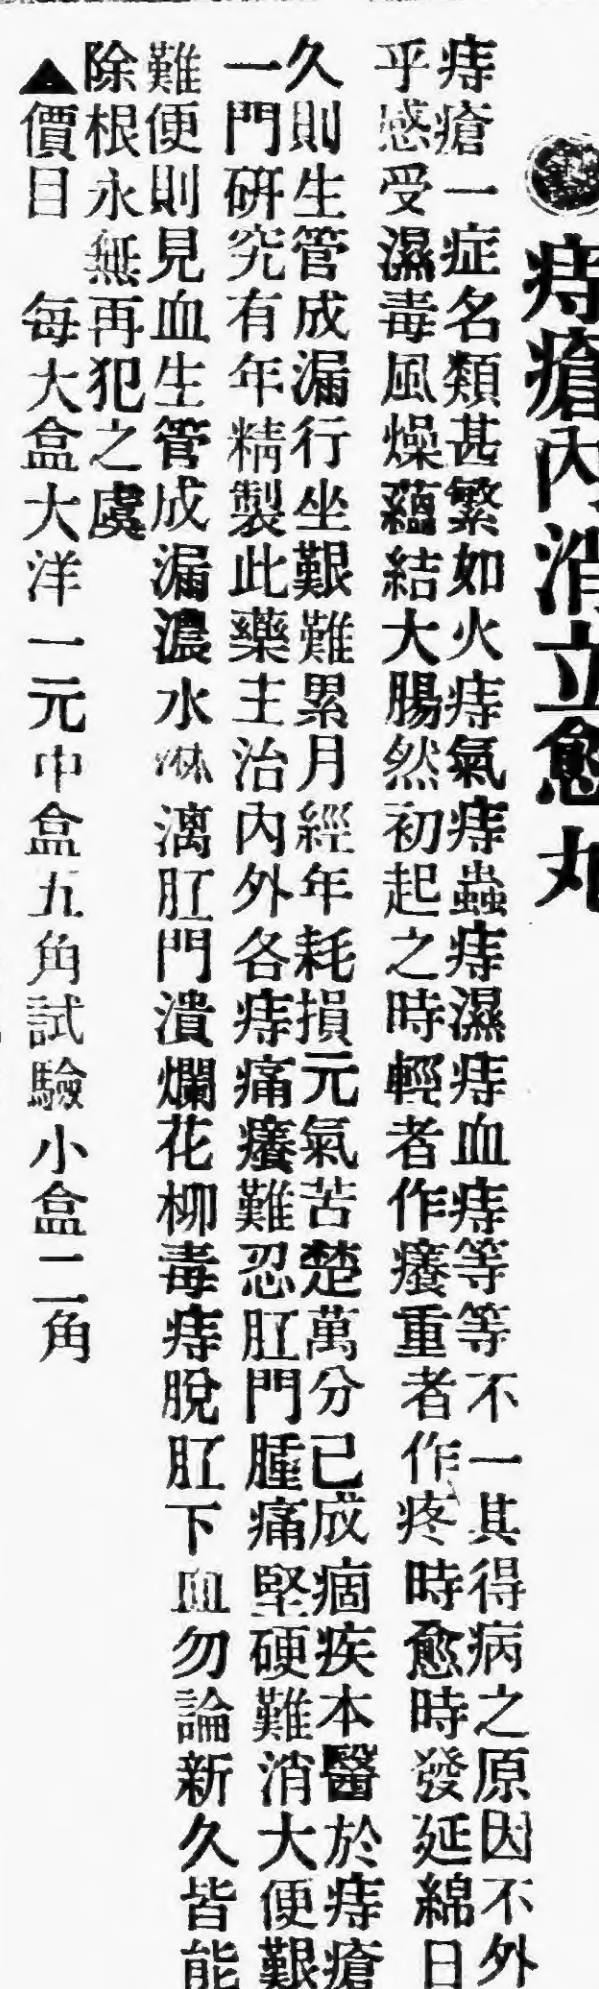 痔瘡內消立愈丸
痔瘡一症名類甚繁如火痔氣痔蟲痔濕痔血痔等等不一其得病之原因不外
乎感受濕毒風燥蘊結大腸然初起之時輕者作癢重者作疼時愈時發延綿日
久則生管成漏行坐艱難累月經年耗損元氣苦楚萬分已成痼疾本醫於痔瘡
一門硏究有年精製此藥主治內外各痔痛癢難忍肛門腫痛堅硬難消大便艱
難便則見血生管成漏濃水淋漓肛門潰爛花柳毒痔脫肛下血勿論新久皆能
除根永無再犯之虞
▲價目　每大盒大洋一元中盒五角試驗小盒二角